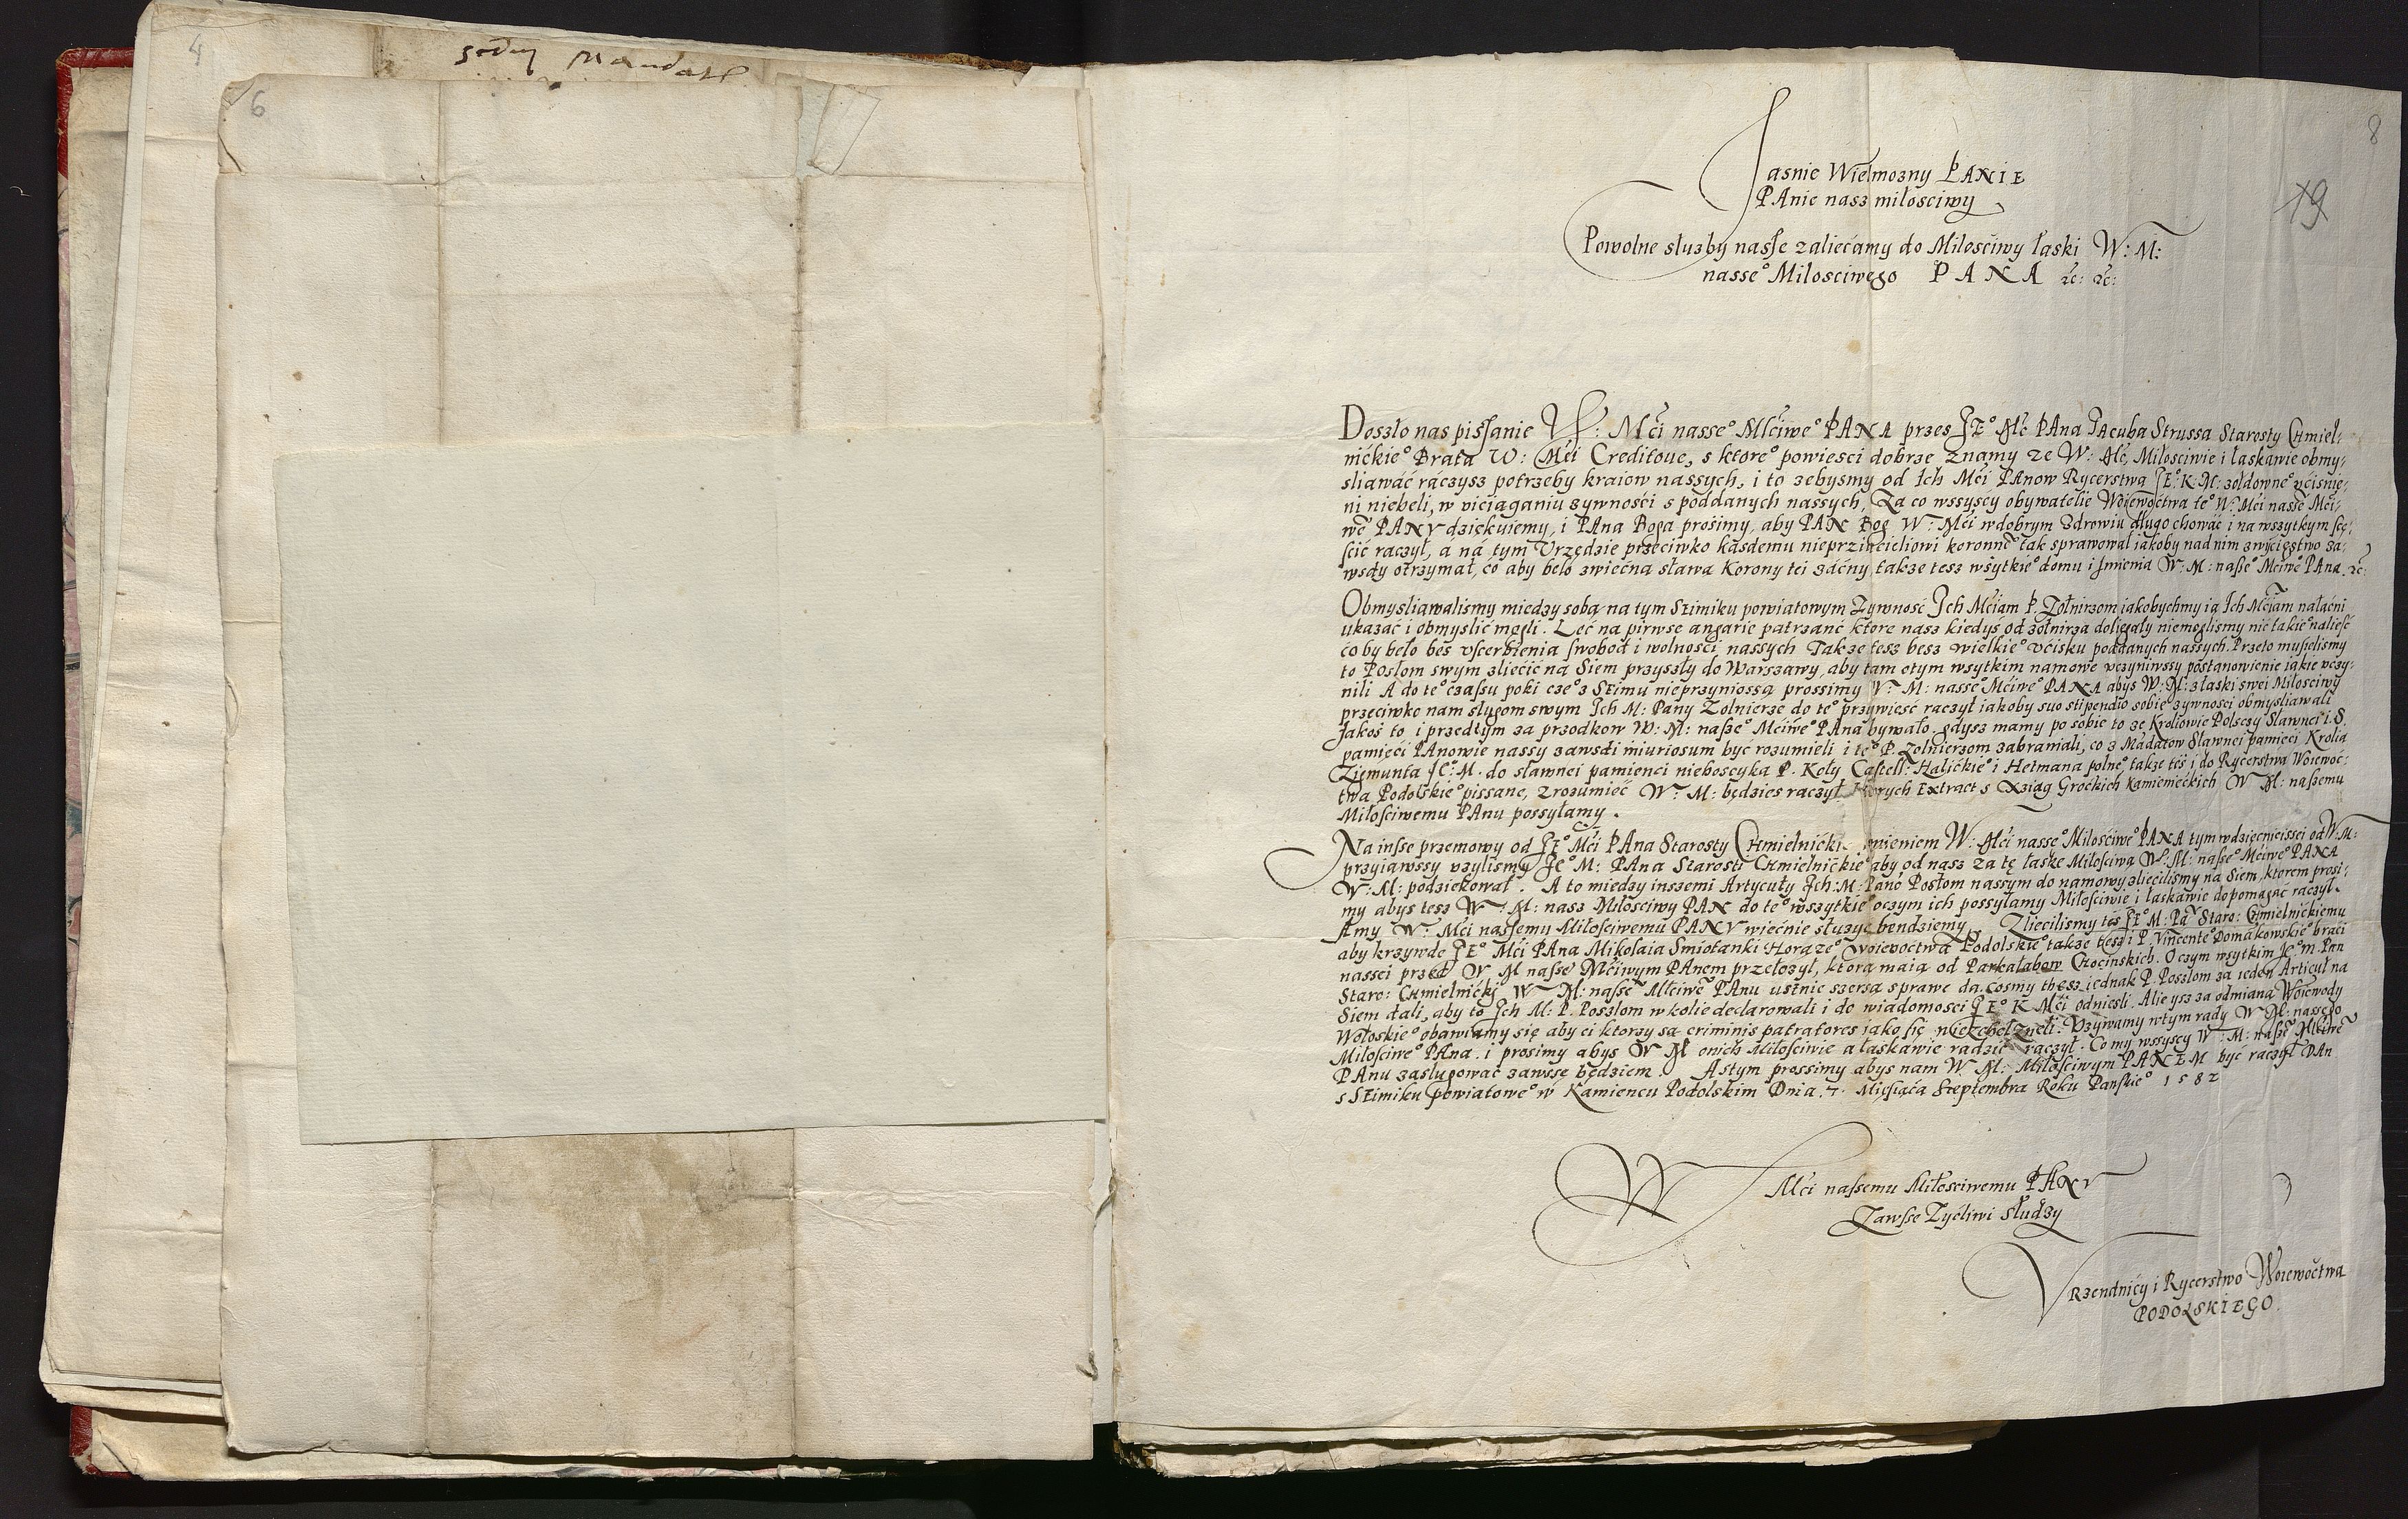 4
6
8
19
Jasnie Wielmozny PANIE
PAnie nasz miłosciwy
Powolne służby nasse zaliećamy do Miłosciwy łaski W: M:
nasse° Miłosciwego PANA ec: ec:
Doszło nas pissanie W: Mći nasse° Młćiwe° PANA przes JE° Mć PAna JAcuba Strussa Starosty Chmiel:
nićkie° Brata W: Mći Creditoue, s ktore° powiesci dobrze znamy ze W: Mć, Miłosciwie i łaskawie obmy:
sliawáć raczysz potrzeby kraiow nassych, i to zebysmy od Ich Mći PAnow Rycerstwa JE°: K: M: zołdowne° vćisnie:
ni niebeli, w vićiąganiu zywnośći s poddanych nassych, Za co wssyscy obywatelie Woiewoćtwa te° W: Mći nasse° Mći:
we° PANV dziękujemy, i PAna Boga prosimy, aby PAN Bog W: Mći w dobrym Zdrowiu długo chowáć i na wszytkym scę:
scić raczył, á ná tym Vrzędzie przeciwko kasdemu nieprziieicieliowi koronne° tak sprawował iakoby nad nim zwycięstwo za:
wsdy otrzymał, co aby beło zwiećną sławą Korony tei záćny także tesz wsytkie° domu i Jmienia W: M: nasse° Mćiwe° PAna. ec:
Obmysliawalismy miedzy sobą na tym SEimiku powiatowym Zywnosć Jch Mćiam P. Zołnirzom iakobychmy ią Ich Mćiam nałaćni
ukazać i obmyslić mogli. Leć na pirwse angarie patrzanć ktore nasz kiedyś od żołnirza doliegały niemoglismy nić takie° nalieść
co by beło bes vscerbienia swobod i wolnosći nassych Także tesz besz wielkie° vćisku poddanych nassych. Przeto musielismy
to Posłom swym zliećić ná Siem przyszły do Warszawy, aby tam otym wsytkim namowe vczyniwssy postanowienie iakie vczy:
nili A do te° czassu poki cze° z SEimu nieprzyniossą prossimy W: M: nasse° Mćiwe° PANA abys W: M: z łaski swei Miłosciwy
przeciwko nam sługom swym Ich M: Pány Zołnierze do te° przywiesć raczył iakoby suo stipendio sobie zywnosci obmysliawali
Jakoś to i przedtym za przodkow W: M: nasse° Mćiwe° PAna bywało, gdysz mamy po sobie to ze Kroliowie Polsczy Sławnei i. S.
pamięći PAnowie nassy zawsdi iniuriosum być rozumieli i te° P. zołnierzom zabramali, co z Mądatow Sławnei pamięci Krolia
Zigmunta JE°: M. do sławnei pamienci nieboscyka P. Koły Castell: Halićkie° i Hetmana polne° także teś i do Ryćerstwa Woiewoć:
twa Podolskie° pissane, zrozumieć W: M: będzies raczył ktorych Extract s Xziąg Groćkich Kamienieckich W: M: nassemu
Miłosciwemu PAnu possyłamy.
Na insse przemowy od JE° Mći PAna Starosty Chmielnićkie° imieniem W: Mći nasse° Miłosciwe° PANA tym wdzięcnieissei od W: M:
przyiąwssy vzylismy Je° M: PAna Starosti Chmielnićkie° aby od nasz za tę łaske Miłosciwą W: M: nasse° Mćiwe° PANA
W: M: podziekował. A to miedzy inszemi Artycuły Jch: M: Pano° Posłom nassym do namowy zliećilismy na Siem, ktorem prosi:
my abys tesz W: M: nasz Miłosciwy PAN do te° wszytkie° oczym ich possyłamy Miłosciwie i łaskawie dopomagać raczył.
A my W: Mći nassemu Miłosciwemu PANV wiećnie słuzyć bendziemy. Zliecilismy teś JE° M: Pa° Staro: Chmielnićkiemu
aby krzywde JE° Mći PAna Mikolaia Smiotanki Horąze° woiewoctwa Podolskie° także tesz i P. Vincente° Domakowskie° braci
nassei przed W: M nasse° Mćiwym PAnem przełozył, ktorą maią od Parkałabow Choćinskich. O czym wsytkim Je° M. Pan
Staro: Chmielnićki W: M: nasse° Młćiwe° PAnu ustnie szersą sprawe da. Cosmy thesz iednak P. Poszłom za ieden Articuł na
Siem dali, aby to Jch M: P. Poszłom w kolie declarowali i do wiadomosci JE° K Mći odniesli. Alie ysz za odmianą Woiewody
Wołoskie° obawiamy się aby ci ktorzy są criminis patratores iako się nie zchełzneli. Vzywamy wtym rady W: M: nassego
Miłosciwe° PAna. i prosimy abys W M onich Miłosciwie a łaskawie radzić raczył. Co my wssyscy W: M: nasse° Młćiwe°
PAnu zasługować zawsse będziem. A stym prossimy abys nam W: M: Miłosciwym PANEM być raczył DAn
s SEimiku powiatowe° w Kamiencu Podolskim Dnia. 7. Miesiąća Septembra Roku Panskie° 1582
W Mći nassemu Miłosciwemu PANV
Zawsse Zyćliwi Słudzy
VRzendnićy i Rycerstwo Woiewoćtwa
PODOLSKIEGO.